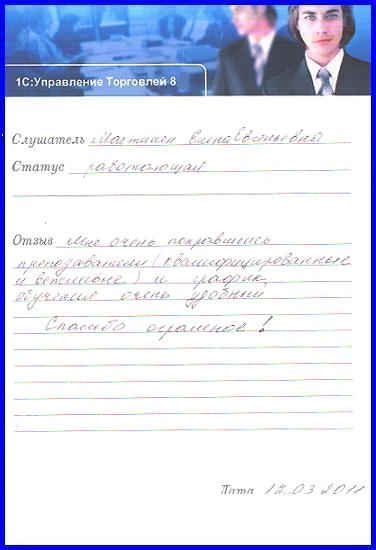 1С:Управление Торговлей 8
Слушатель Мастинен Елена Евгеньевна
Статус работающая
Отзыв Мне очень понравились
преподаватели (квалифицированные
и вежливые) и график
обучения очень удобный
Спасибо огромное!
Дата 17.03 2011